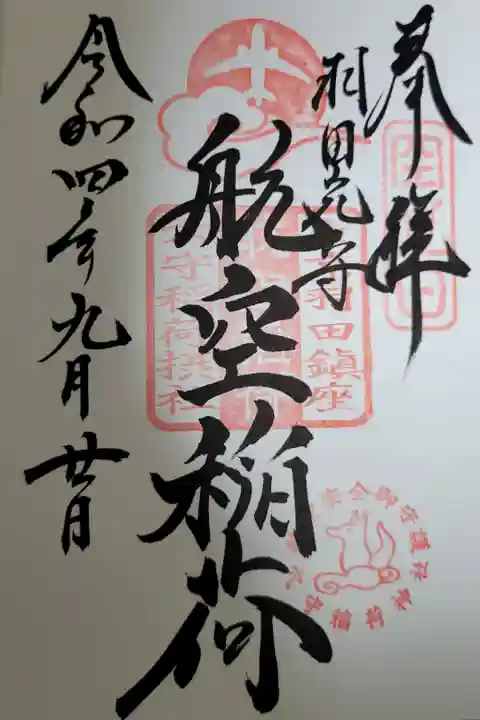 奉拝
羽田穴守
航空稲荷
令和四年九月廿日
羽田鎮座
守稲荷摂社